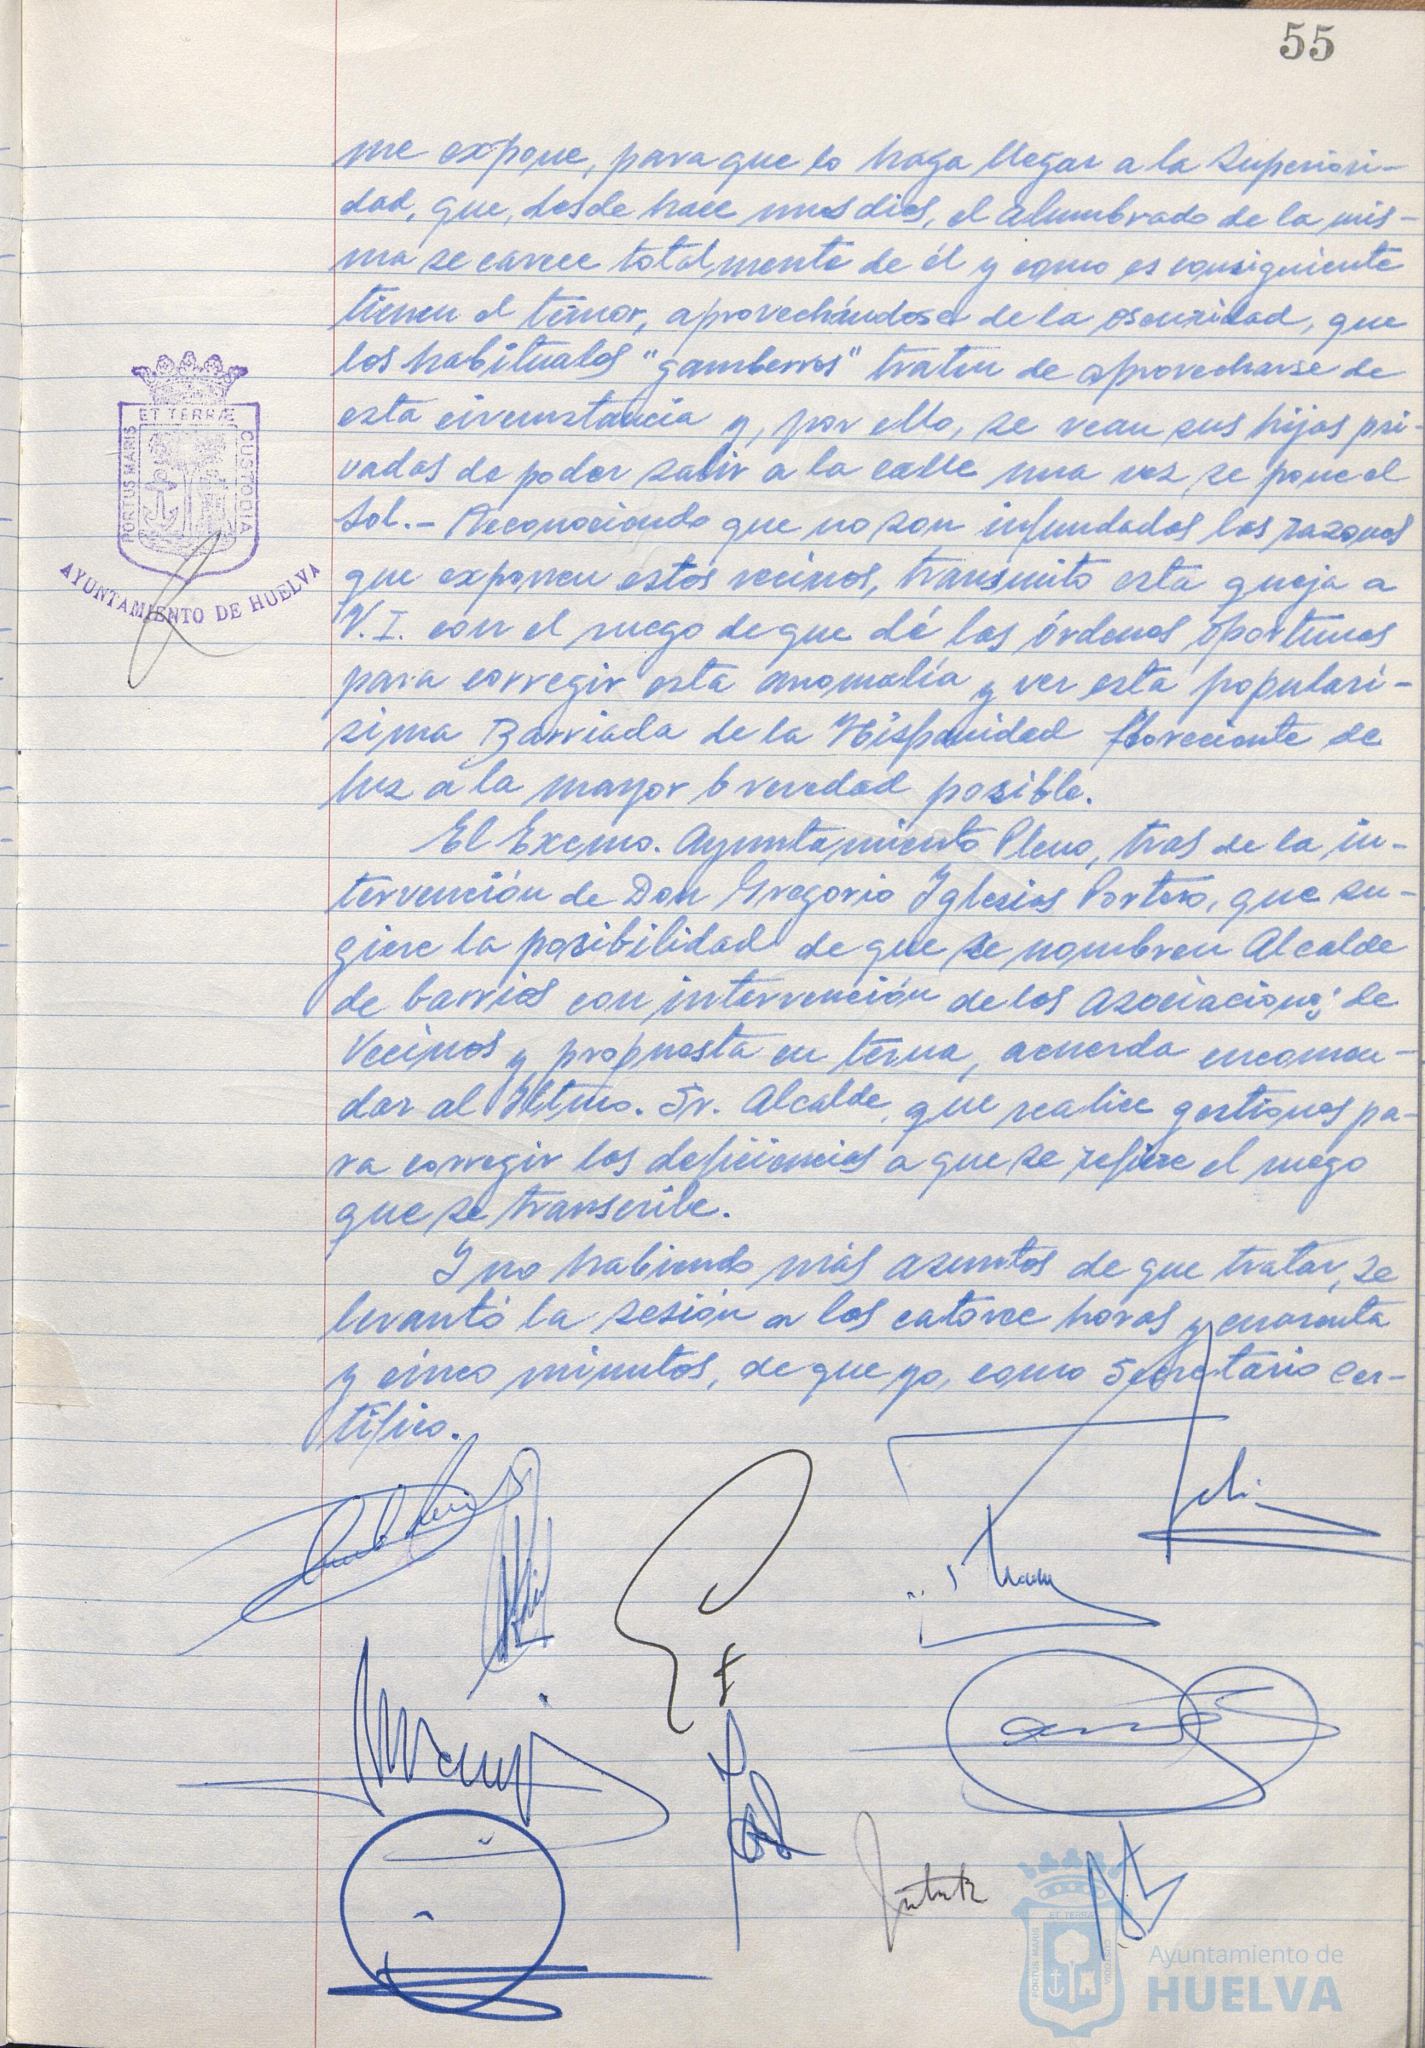 55
me expone, para que lo haga llegar a la Superiori-
dad, que, desde hace unos dias, el alumbrado de la mis-
ma se carece totalmente de él y como es consiguiente
tienen el temor, aprovechándose de la oscuridad, que
los habituales "gamberros" traten de aprovecharse de
esta circunstancia y, por ello, se vean sus hijas pri-
vadas de poder salir a la calle una vez se pone el
sol.- Reconociendo que no son infundadas las razones
que exponen estos vecinos, transmito esta queja a
V.I. con el ruego de que dé las órdenes oportunas
para corregir esta anomalía y ver esta populari-
sima Barriada de la Hispanidad floreciente de
luz a la mayor brevedad posible.
El Excmo. Ayuntamiento Pleno, tras de la in-
tervención de Don Gregorio Iglesias Portero, que su-
giere la posibilidad de que se nombren Alcalde
de barrios con intervención de las Asociaciones de
Vecinos y propuesta en terna, acuerda encomen-
dar al Iltmo. Sr. Alcalde, que realice gestiones pa-
ra corregir las deficiencias a que se refiere el ruego
que se transcribe.
Y no habiendo más asuntos de que tratar, se
levantó la sesión a las catorce horas y cuarenta
y cinco minutos, de que yo, como Secretario cer-
tifico.
ET TERRÆ
PORTUS MARIS
CUSTODIA
AYUNTAMIENTO DE HUELVA
ET TERRÆ
PORTUS MARIS
CUSTODIA
Ayuntamiento de
HUELVA